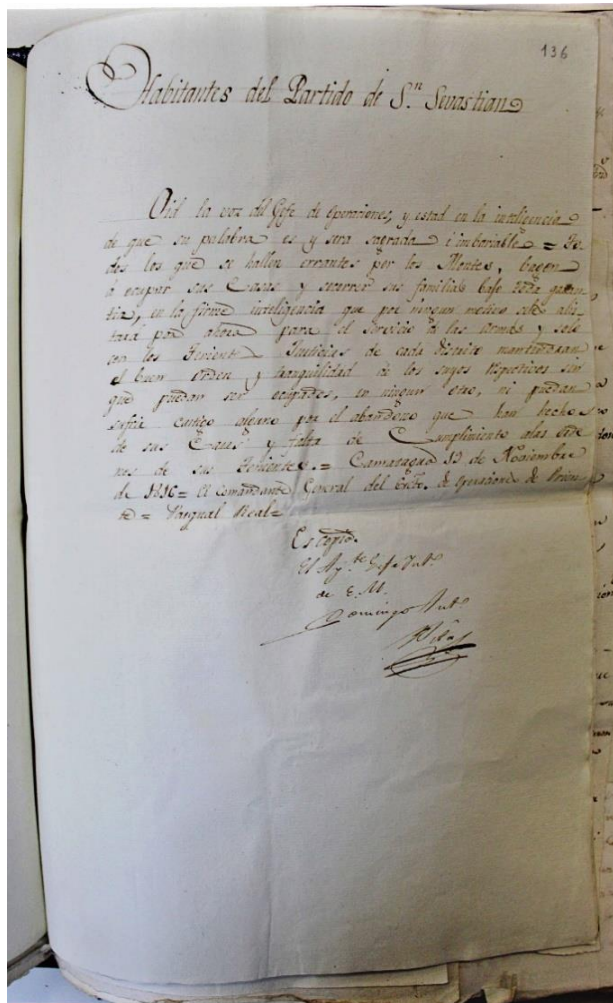 136
Habitantes del Partido de S.n Sevastian
Oid la voz del Gefe de Operaciones, y estad en la inteligencia
de que su palabra es y sera sagrada é imbariable = To-
dos los que se hallen errantes por los Montes, bagen
á ocupar sus Casas y socorrer sus familias bajo toda garan-
tia, en la firme inteligencia que por ningun motivo se les alis-
tará por ahora para el servicio de las armas y solo
con los Tenientes Justicias de cada distrito mantendran
el buen orden y tranquilidad de los suyos respectivos sin
que puedan ser ocupados, en ningun otro, ni puedan
sufrir castigo alguno por el abandono que han hecho
de sus Casas y falta de Cumplimiento alas orde
nes de sus Tenientes. = Camatagua 12 de Noviembre
de 1816 = El Comandante General del Exto. de operaciones de Orien-
te = Pasqual Real =
Es copia.
El Ay.te Gefe Int.o
de E. M.
Domingo Ant.o